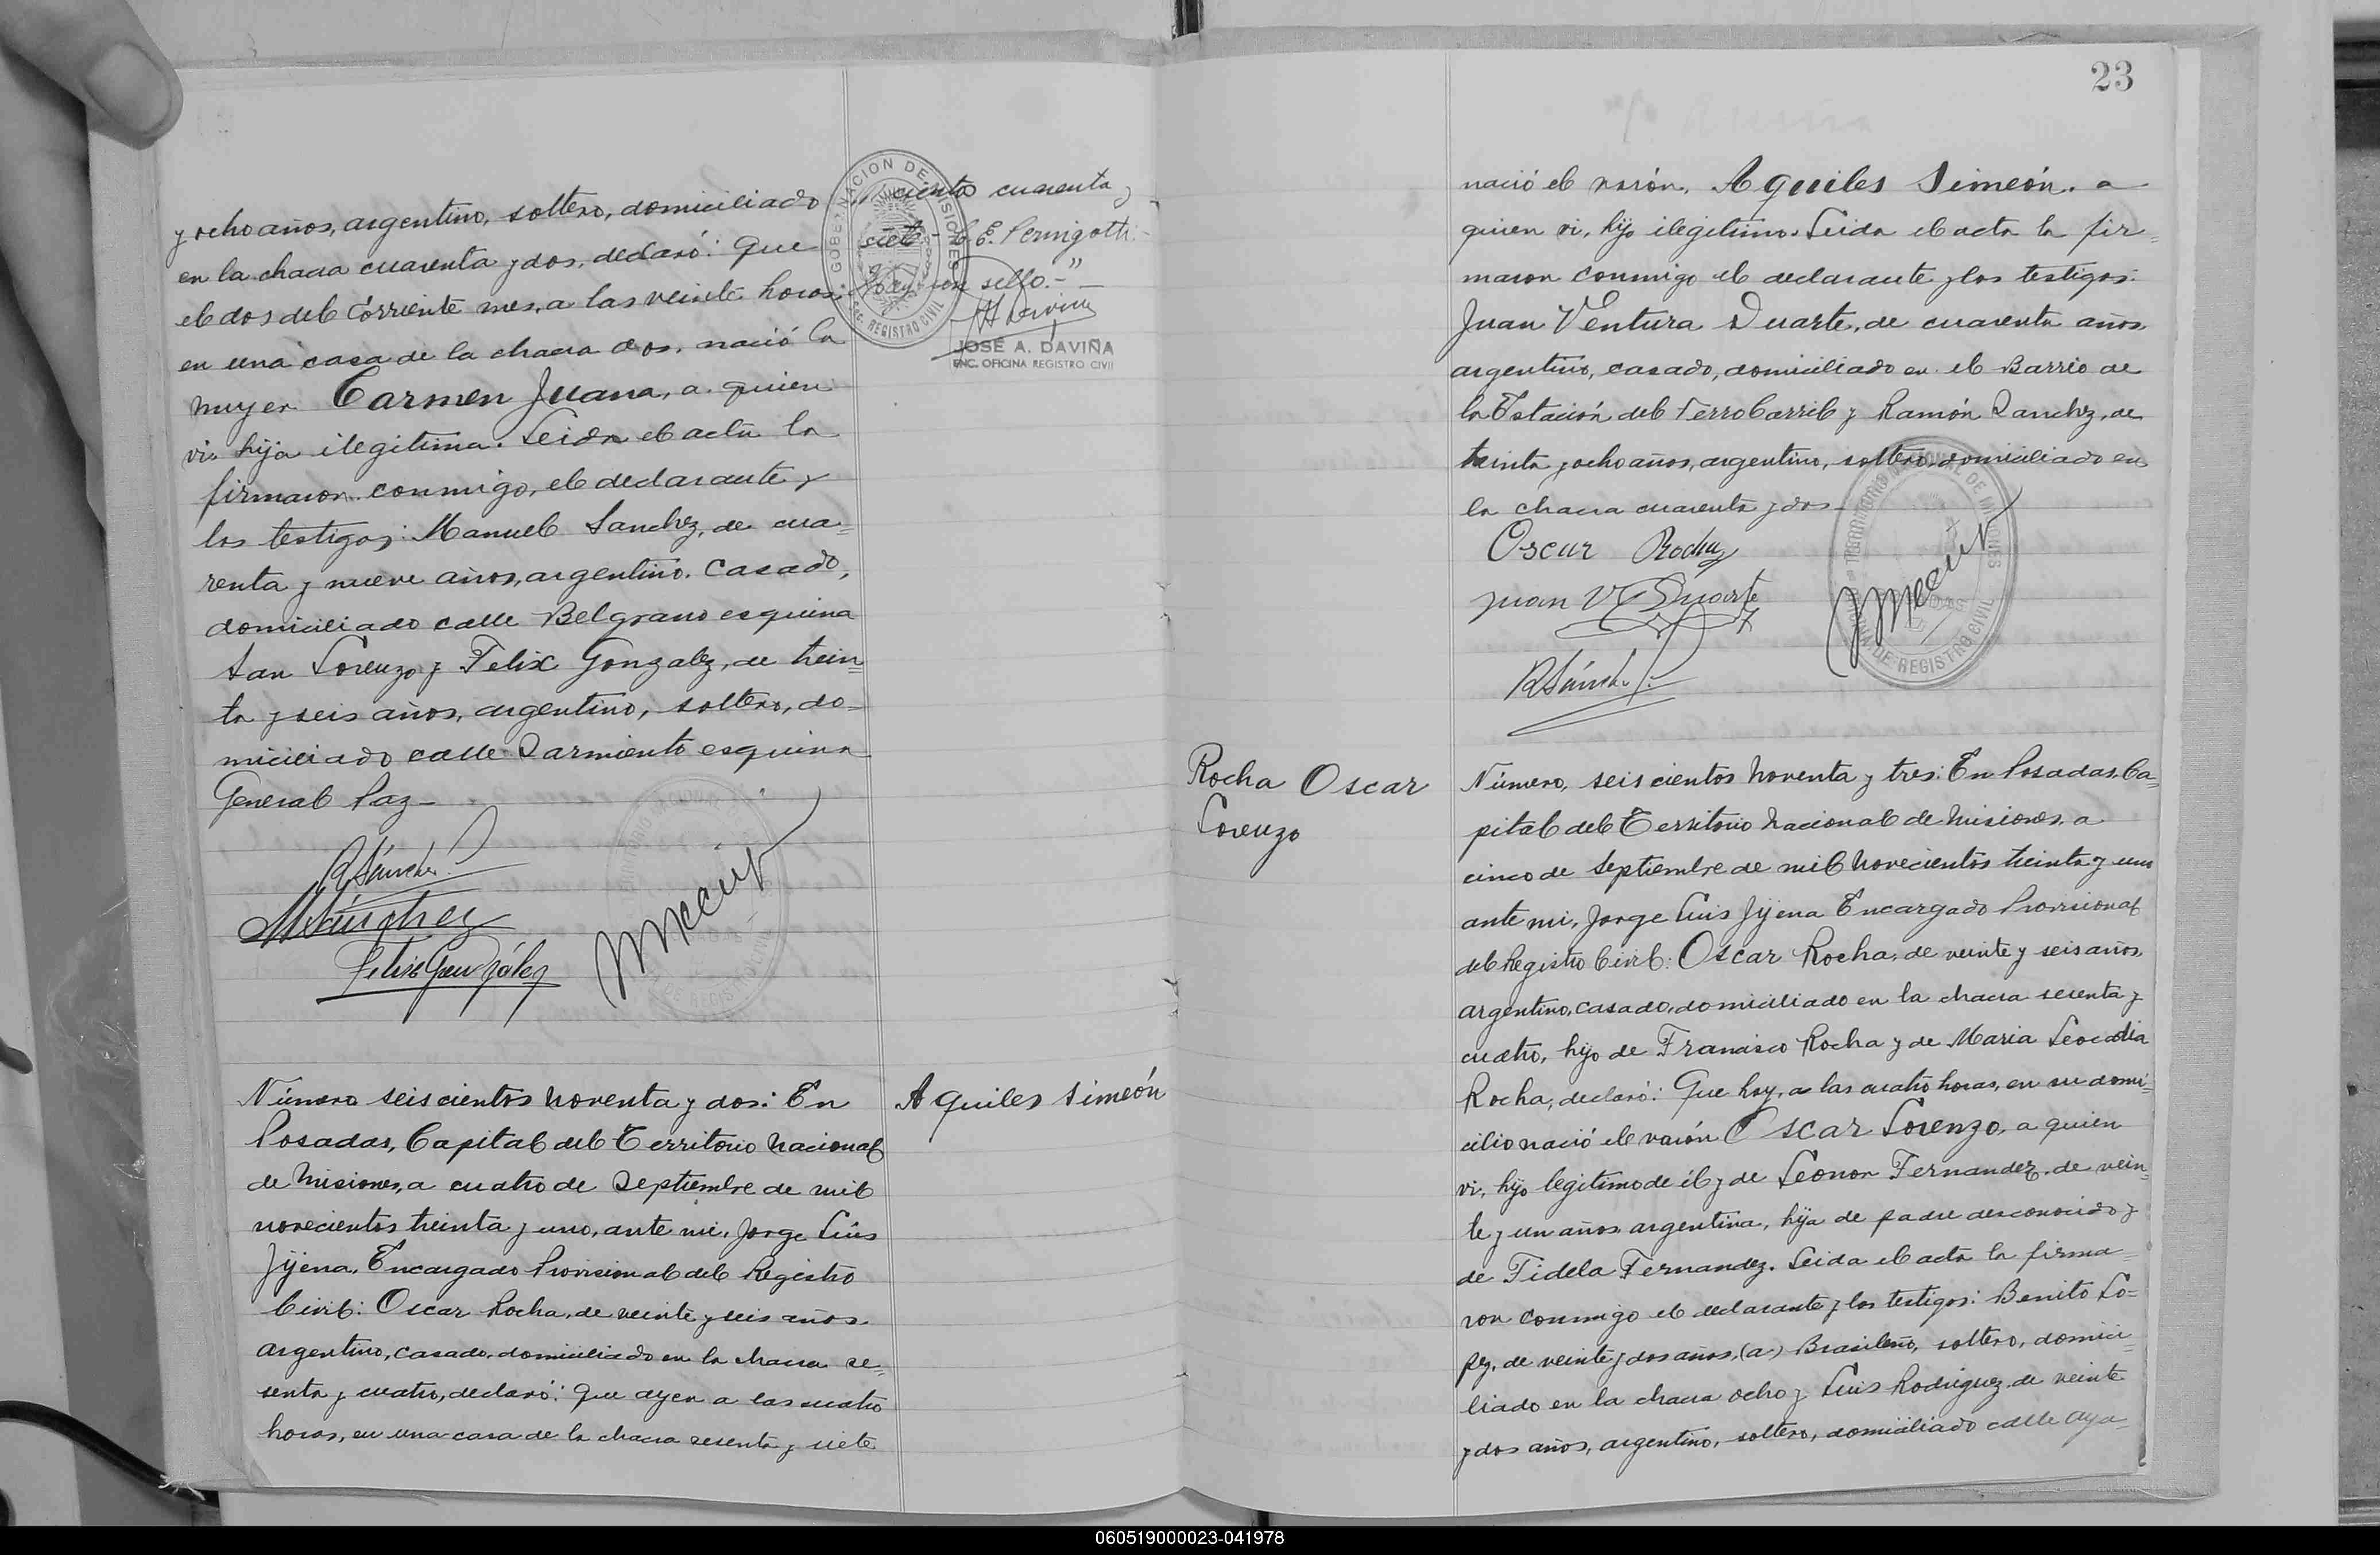 y ocho años, argentino, soltero, domiciliado
en la chacra cuarenta y dos, declaró: Que
el dos del corriente mes, a las veinte horas,
en una casa de la chacra dos, nació la
mujer Carmen Juana, a quien
vi, hija ilegitima. Leida el acta la
firmaron conmigo, el declarante y
los testigos: Manuel Sanchez, de cua=
renta y nueve años, argentino, casado,
domiciliado calle Belgrano esquina
San Lorenzo y Felix Gonzalez, de trein=
ta y seis años, argentino, soltero, do-
miciliado calle Sarmiento esquina
General Paz-
R Sánchez
M Sánchez
Felix González
ciento cuarenta y
siete - E. Peringotti -
Hay un sello.-"-
GOBERNACION DE MISIONES
REGISTRO CIVIL
JOSÉ A. DAVIÑA
ENC. OFICINA REGISTRO CIVIL
Número seiscientos noventa y dos: En
Posadas, Capital del Territorio Nacional
de Misiones, a cuatro de Septiembre de mil
novecientos treinta y uno, ante mi, Jorge Luis
Jijena, Encargado Provisional del Registro
Civil: Oscar Rocha, de veinte y seis años,
argentino, casado, domiciliado en la chacra se=
senta y cuatro, declaró: Que ayer a las cuatro
horas, en una casa de la chacra sesenta y siete
Aquiles Simeón
23
nació el varón, Aquiles Simeón. a
quien vi, hijo ilegitimo. Leida el acta la fir=
maron conmigo el declarante y los testigos:
Juan Ventura Duarte, de cuarenta años,
argentino, casado, domiciliado en el Barrio de
la Estación del Ferro Carril y Ramón Sanchez, de
treinta y ocho años, argentino, soltero, domiciliado en
la chacra cuarenta y dos-
Oscar Rocha
Juan V Duarte
R Sánchez
TERRITORIO NACIONAL DE MISIONES
DE REGISTRO CIVIL
Rocha Oscar
Lorenzo
Número, seiscientos noventa y tres: En Posadas, Ca=
pital del Territorio Nacional de Misiones, a
cinco de Septiembre de mil novecientos treinta y uno
ante mi, Jorge Luis Jijena Encargado Provisional
del Registro Civil: Oscar Rocha, de veinte y seis años,
argentino, casado, domiciliado en la chacra sesenta y
cuatro, hijo de Francisco Rocha y de Maria Leocadia
Rocha, declaró: Que hoy, a las cuatro horas, en su domi=
cilio nació el varón Oscar Lorenzo, a quien
vi, hijo legitimo de él y de Leonor Fernandez, de vein=
te y un años, argentina, hija de padre desconocido y
de Fidela Fernandez. Leida el acta la firma=
ron conmigo el declarante y los testigos: Benito Lo=
pez, de veinte y dos años, (a) Brasileño, soltero, domici=
liado en la chacra ocho y Luis Rodriguez, de veinte
y dos años, argentino, soltero, domiciliado calle Aya=
060519000023-041978